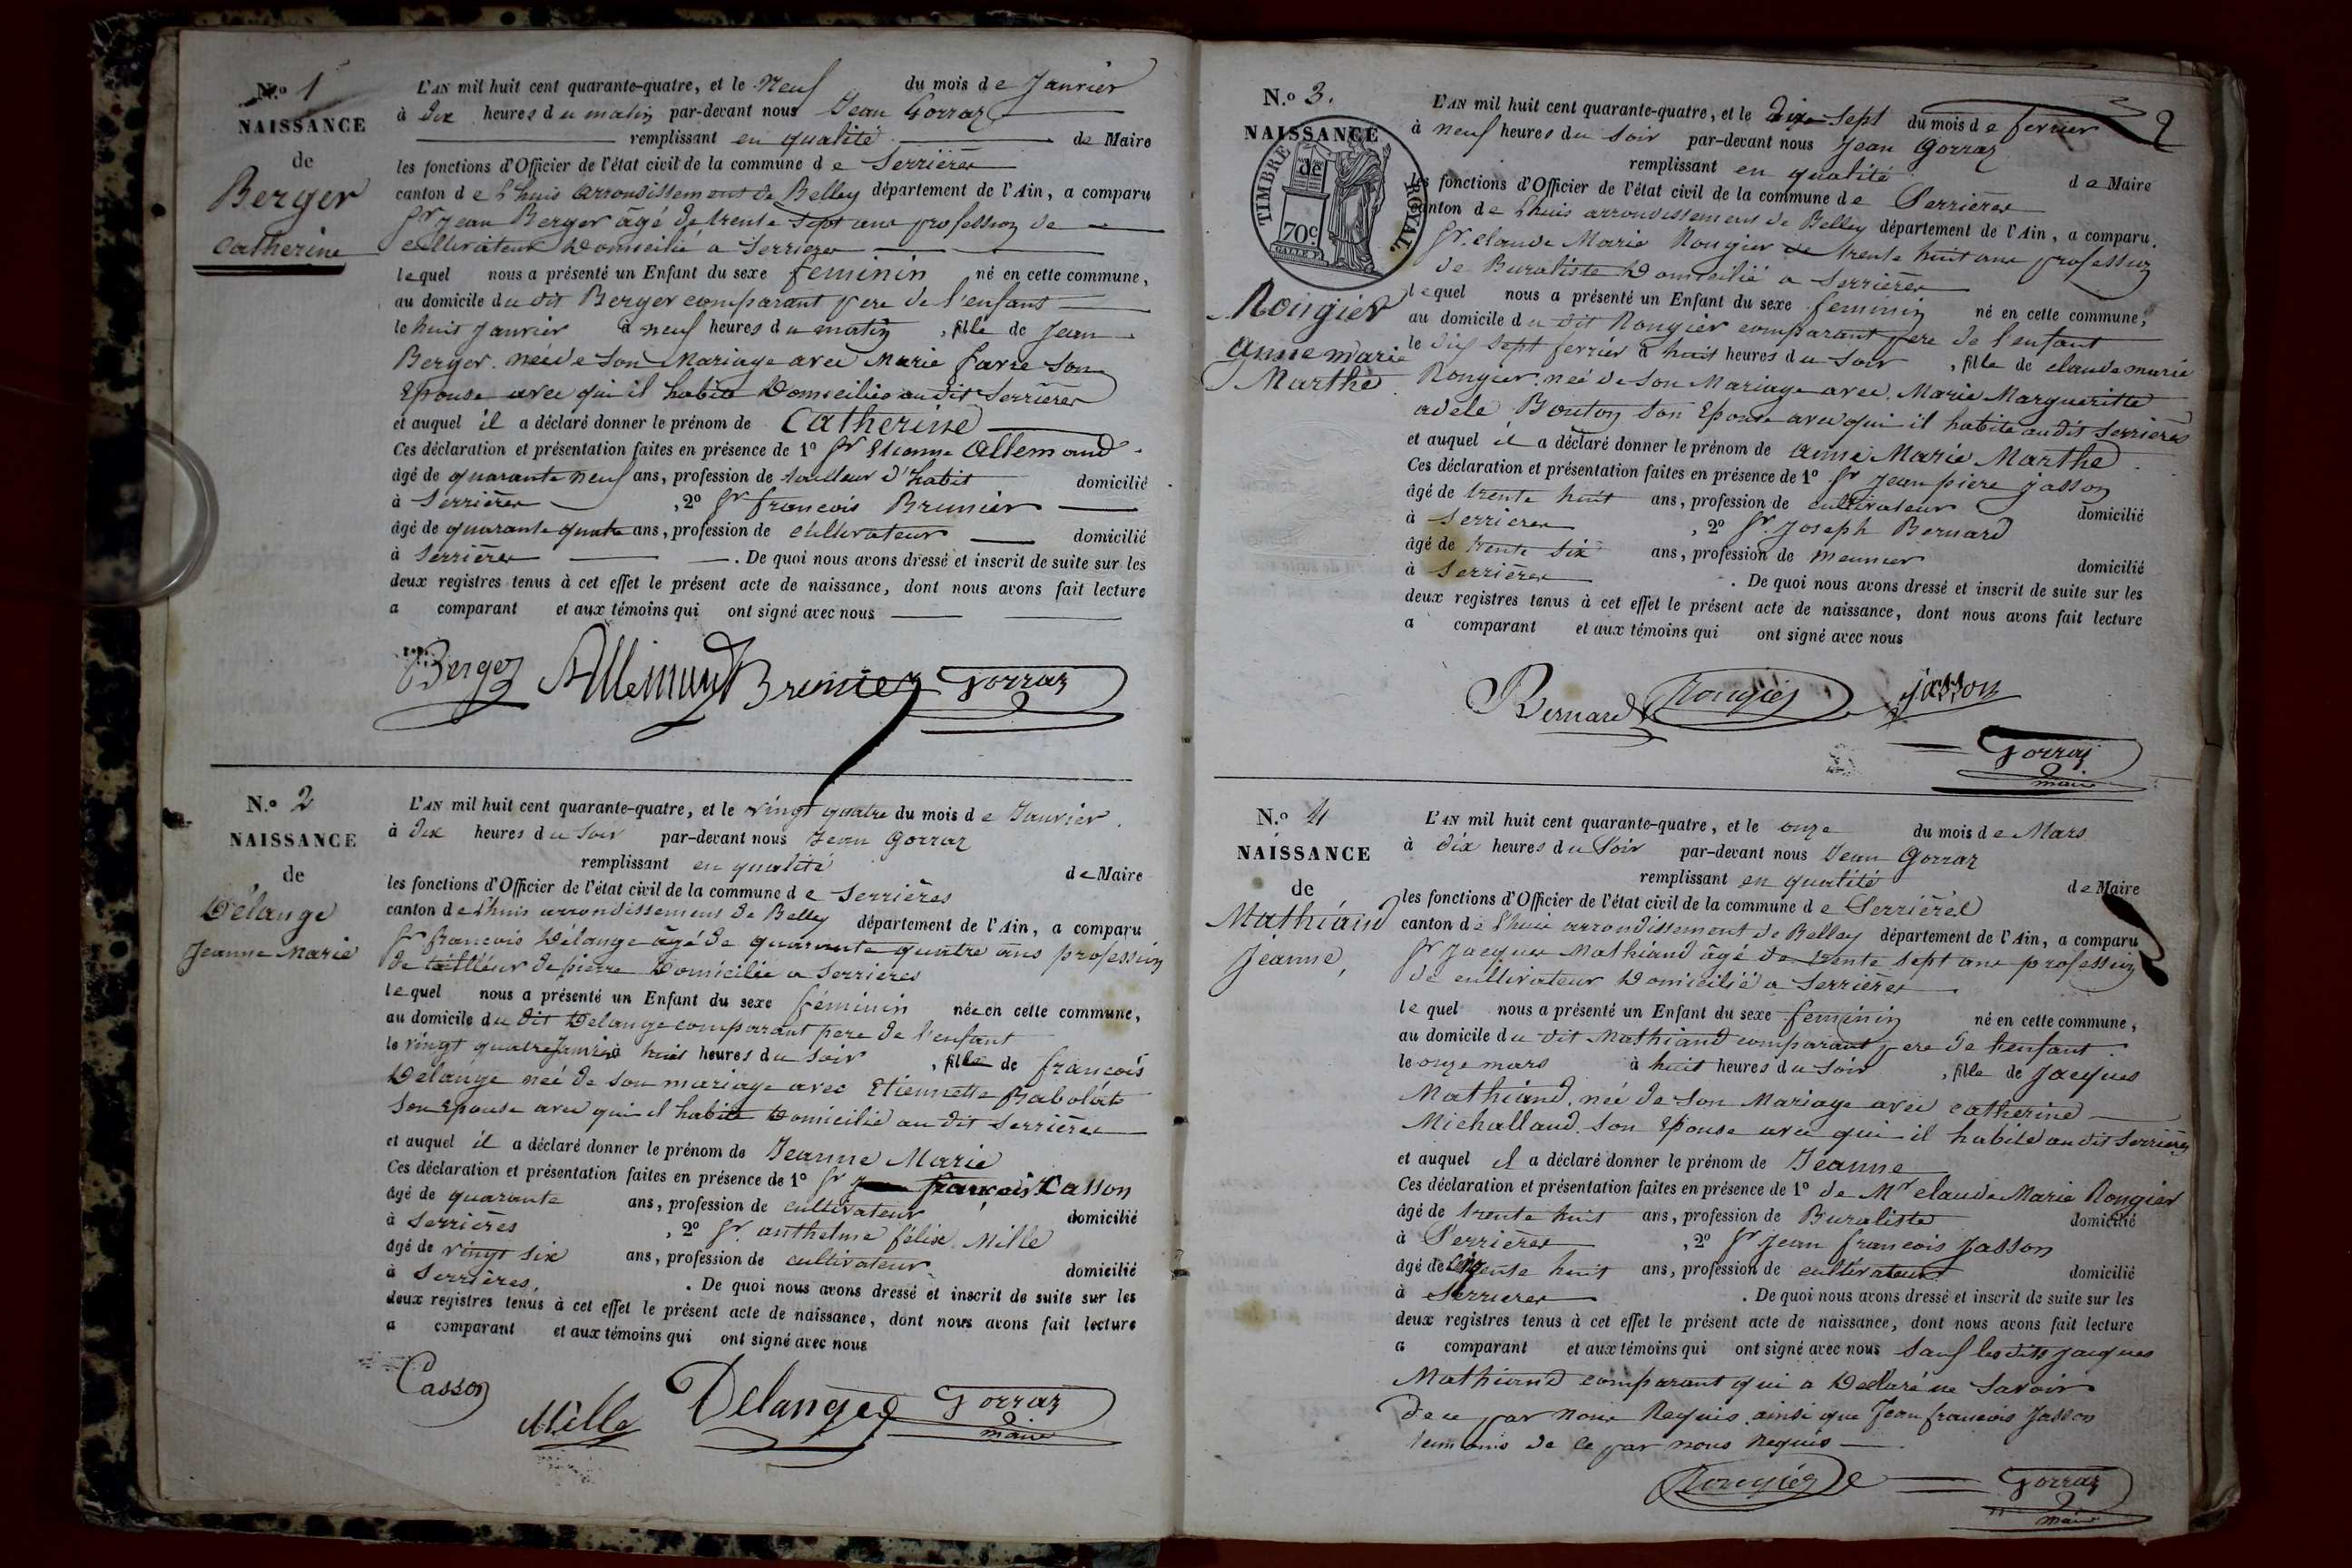 N.º 1
NAISSANCE
de
Berger
Catherine
L'AN mil huit cent quarante-quatre, et le neuf du mois de Janvier
à dix heures du matin par-devant nous Jean Gorraz
remplissant en qualité de Maire
les fonctions d'Officier de l'état civil de la commune de Serrières
canton de Lhuis arrondissement de Belley département de l'Ain, a comparu
Sr Jean Berger âgé de trente sept ans profession de
cultivateur domicilié a Serrieres
lequel nous a présenté un Enfant du sexe feminin né en cette commune,
au domicile du dit Berger comparant pere de l'enfant
le huit Janvier à neuf heures du matin, fille de Jean
Berger. née de son Mariage avec Marie favre son
Epouse avec qui il habite domicilié au dit Serrières
et auquel il a déclaré donner le prénom de Catherine
Ces déclaration et présentation faites en présence de 1º Sr Etienne Allemand
âgé de quarante neuf ans, profession de tailleur d'habit domicilié
à Serrières, 2º Sr francois Brunier
âgé de quarante quatre ans, profession de cultivateur domicilié
à Serrières. De quoi nous avons dressé et inscrit de suite sur les
deux registres tenus à cet effet le présent acte de naissance, dont nous avons fait lecture
a comparant et aux témoins qui ont signé avec nous
Berger Allemand Brunier Gorraz
N.º 2
NAISSANCE
de
Délange
Jeanne Marie
L'AN mil huit cent quarante-quatre, et le vingt quatre du mois de Janvier.
à dix heures du soir par-devant nous Jean Gorraz
remplissant en qualité de Maire
les fonctions d'Officier de l'état civil de la commune de Serrières
canton de Lhuis arrondissement de Belley département de l'Ain, a comparu
Sr francois Délange âgé de quarante quatre ans profession
de tailleur de pierre domicilié a Serrieres
lequel nous a présenté un Enfant du sexe féminin née en cette commune,
au domicile du dit Delange comparant pere de l'enfant
le vingt quatre Janvier à huit heures du soir, fille de francois
Delange neé de son mariage avec Etiennette Rabolat
son epouse avec qui il habite domicilié au dit Serrières
et auquel il a déclaré donner le prénom de Jeanne Marie
Ces déclaration et présentation faites en présence de 1º Sr francois Casson
âgé de quarante ans, profession de cultivateur domicilié
à Serrières, 2º Sr. anthelme félix Mille
âgé de vingt six ans, profession de cultivateur domicilié
à Serrières. De quoi nous avons dressé et inscrit de suite sur les
deux registres tenus à cet effet le présent acte de naissance, dont nous avons fait lecture
a comparant et aux témoins qui ont signé avec nous
Casson Mille Delange Gorraz
maire
2
N.º 3.
NAISSANCE
de
TIMBRE ROYAL
70c
Rougier
anne marie
Marthe
L'AN mil huit cent quarante-quatre, et le dix-sept du mois de fevrier
à neuf heures du soir par-devant nous Jean Gorraz
remplissant en qualité de Maire
les fonctions d'Officier de l'état civil de la commune de Serrières
canton de Lhuis arrondissement de Belley département de l'Ain, a comparu.
Sr. claude Marie Rougier de trente huit ans profession
de Buraliste Domicilié a Serrières
lequel nous a présenté un Enfant du sexe feminin né en cette commune,
au domicile du dit Rougier comparant pere de l'enfant
le dix sept fevrier à huit heures du soir, fille de claude marie
Rougier. neé de son Mariage avec Marie Margueritte
adele Bouton son Epouse avec qui il habite au dit Serrières
et auquel il a déclaré donner le prénom de anne Marie Marthe
Ces déclaration et présentation faites en présence de 1º Sr Jean piere Jasson
âgé de trente huit ans, profession de cultivateur domicilié
à Serrieres, 2º Sr. Joseph Bernard
âgé de trente six ans, profession de meunier domicilié
à Serrières. De quoi nous avons dressé et inscrit de suite sur les
deux registres tenus à cet effet le présent acte de naissance, dont nous avons fait lecture
a comparant et aux témoins qui ont signé avec nous
Bernard Rougier Jasson
Gorraz
maire
N.º 4
NAISSANCE
de
Mathiand
Jeanne,
L'AN mil huit cent quarante-quatre, et le onze du mois de Mars
à dix heures du Soir par-devant nous Jean Gorraz
remplissant en qualité de Maire
les fonctions d'Officier de l'état civil de la commune de Serrières
canton de Lhuis arrondissement de Belley département de l'Ain, a comparu
Sr Jacques Mathiand âgé de trente sept ans profession
de cultivateur domicilié a Serrières
lequel nous a présenté un Enfant du sexe feminin né en cette commune,
au domicile du dit Mathiand comparant pere de l'enfant.
le onze mars à huit heures du Soir, fille de Jacques
Mathiand. neé de son Mariage avec catherine
Michalland. son Epouse avec qui il habite au dit Serrières
et auquel il a déclaré donner le prénom de Jeanne
Ces déclaration et présentation faites en présence de 1º de Mr claude Marie Rougier
âgé de trente huit ans, profession de Buraliste domicilié
à Serrières, 2º Sr Jean francois Jasson
âgé de trente huit ans, profession de cultivateur domicilié
à Serrieres. De quoi nous avons dressé et inscrit de suite sur les
deux registres tenus à cet effet le présent acte de naissance, dont nous avons fait lecture
a comparant et aux témoins qui ont signé avec nous Sauf les dits Jacques
Mathiand comparant qui a Declaré ne Savoir
de ce par nous Requis ainsi que Jean francois Jasson
temoins de ce par nous Requis
Rougier Gorraz
maire